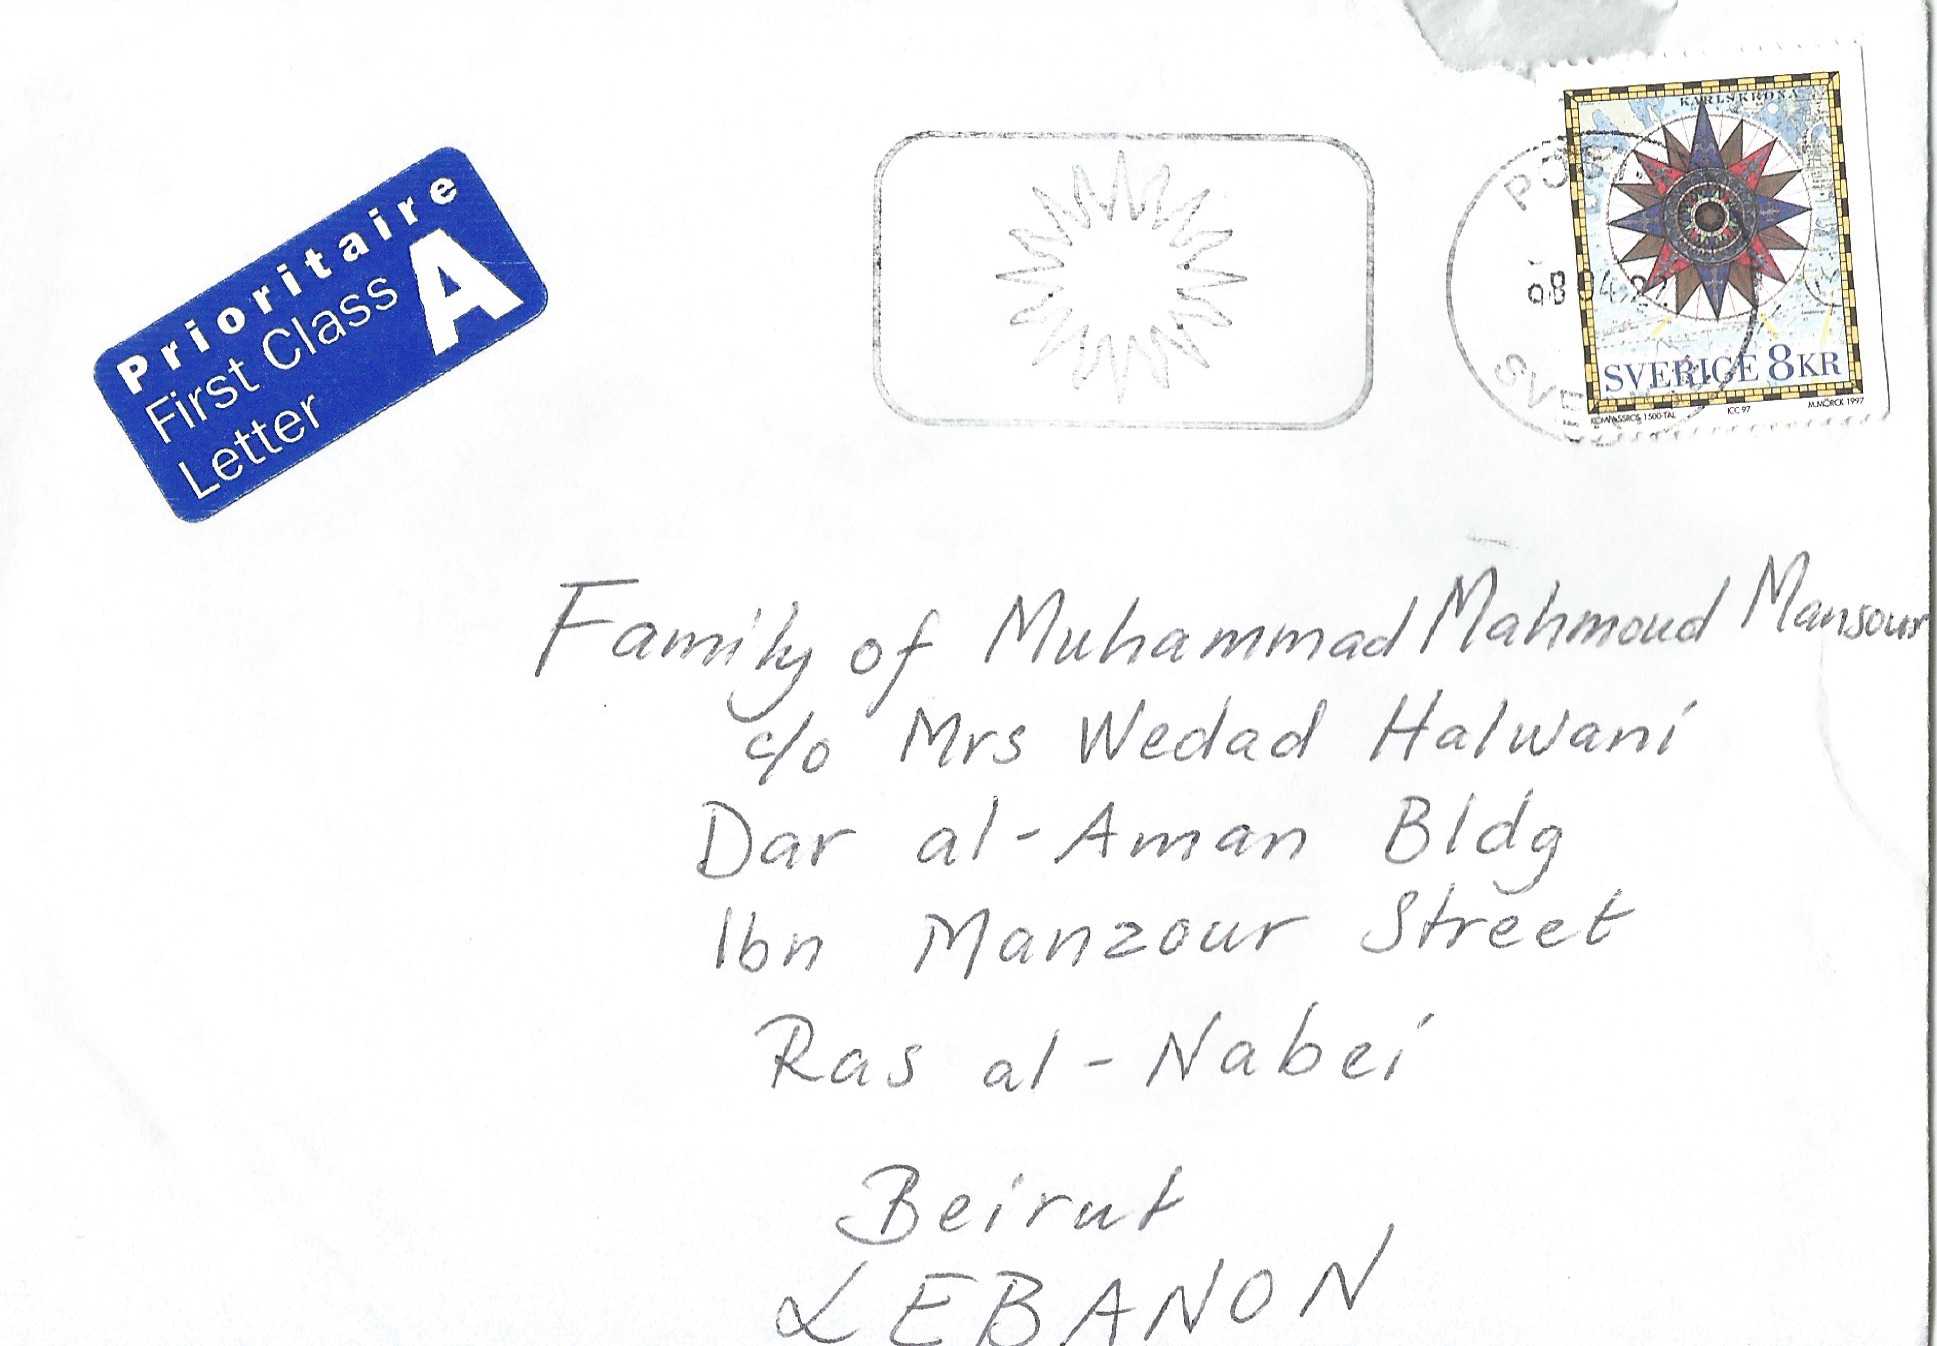 Prioritaire
First Class
Letter
A
KARLSKRONA
SVERIGE 8KR
KOMPASSROS 1500-TAL ICC 97 M.MÖRCK 1997
Family of Muhammad Mahmoud Mansour
c/o Mrs Wedad Halwani
Dar al-Aman Bldg
Ibn Manzour Street
Ras al-Nabei
Beirut
LEBANON